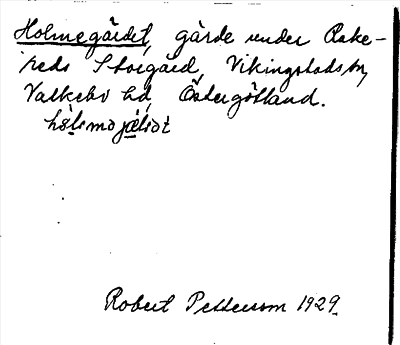 Holmegärdet, gärde under Rake-
reds Storgård, Vikingstads sn,
Valkebo hd, Östergötland.
hòlsmɔjæ̀lɔt
Robert Pettersson 1929.